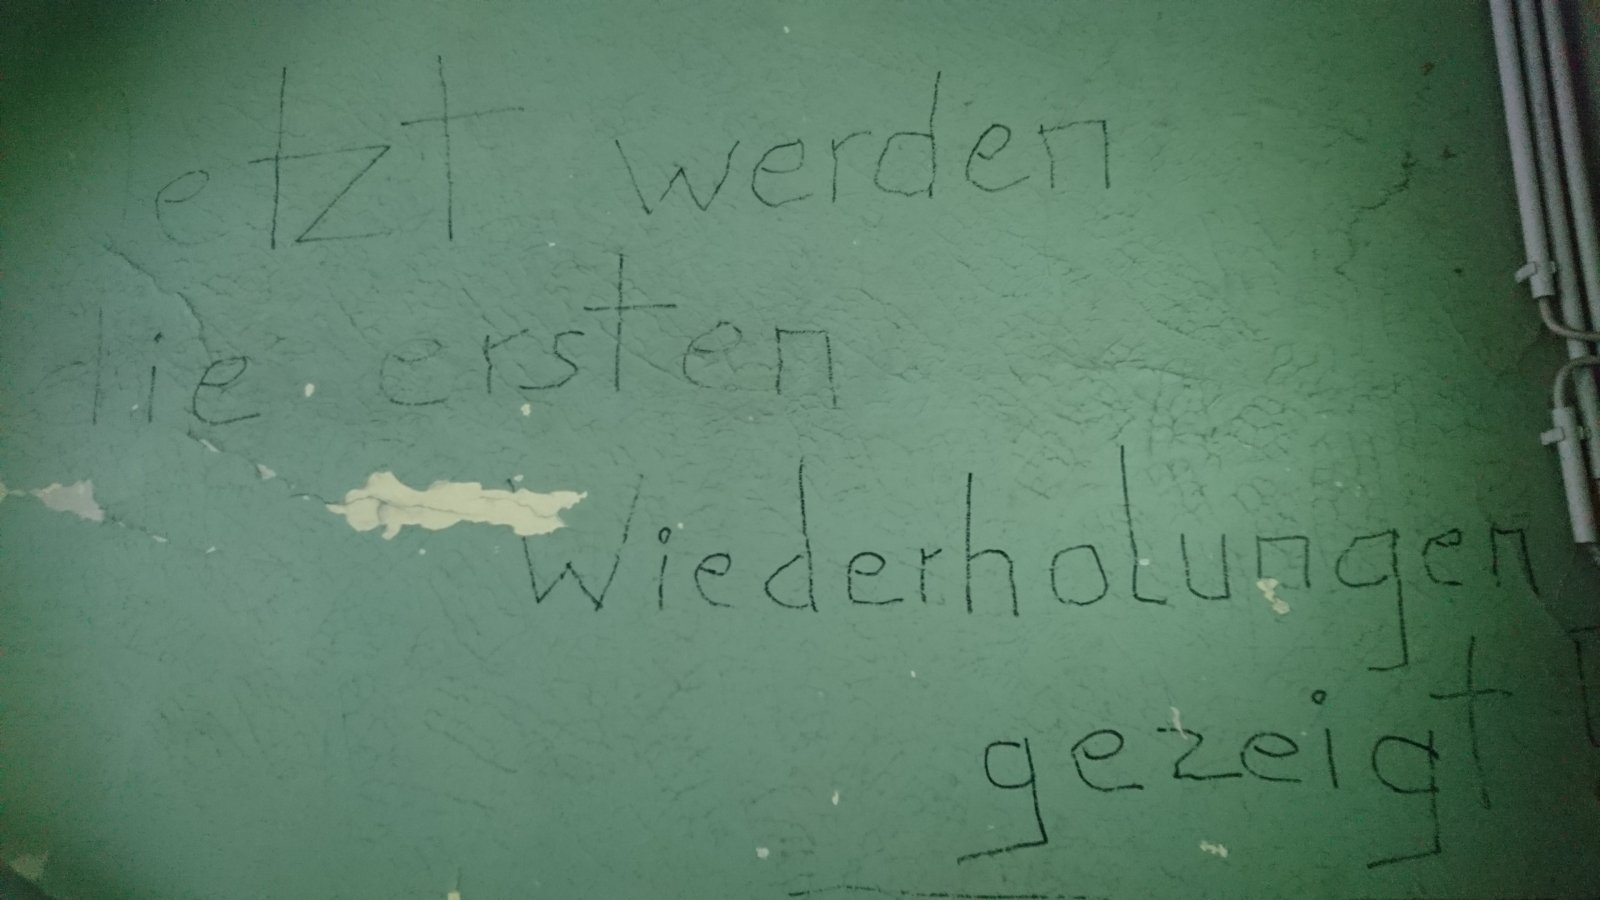 Jetzt werden
die ersten
Wiederholungen
gezeigt